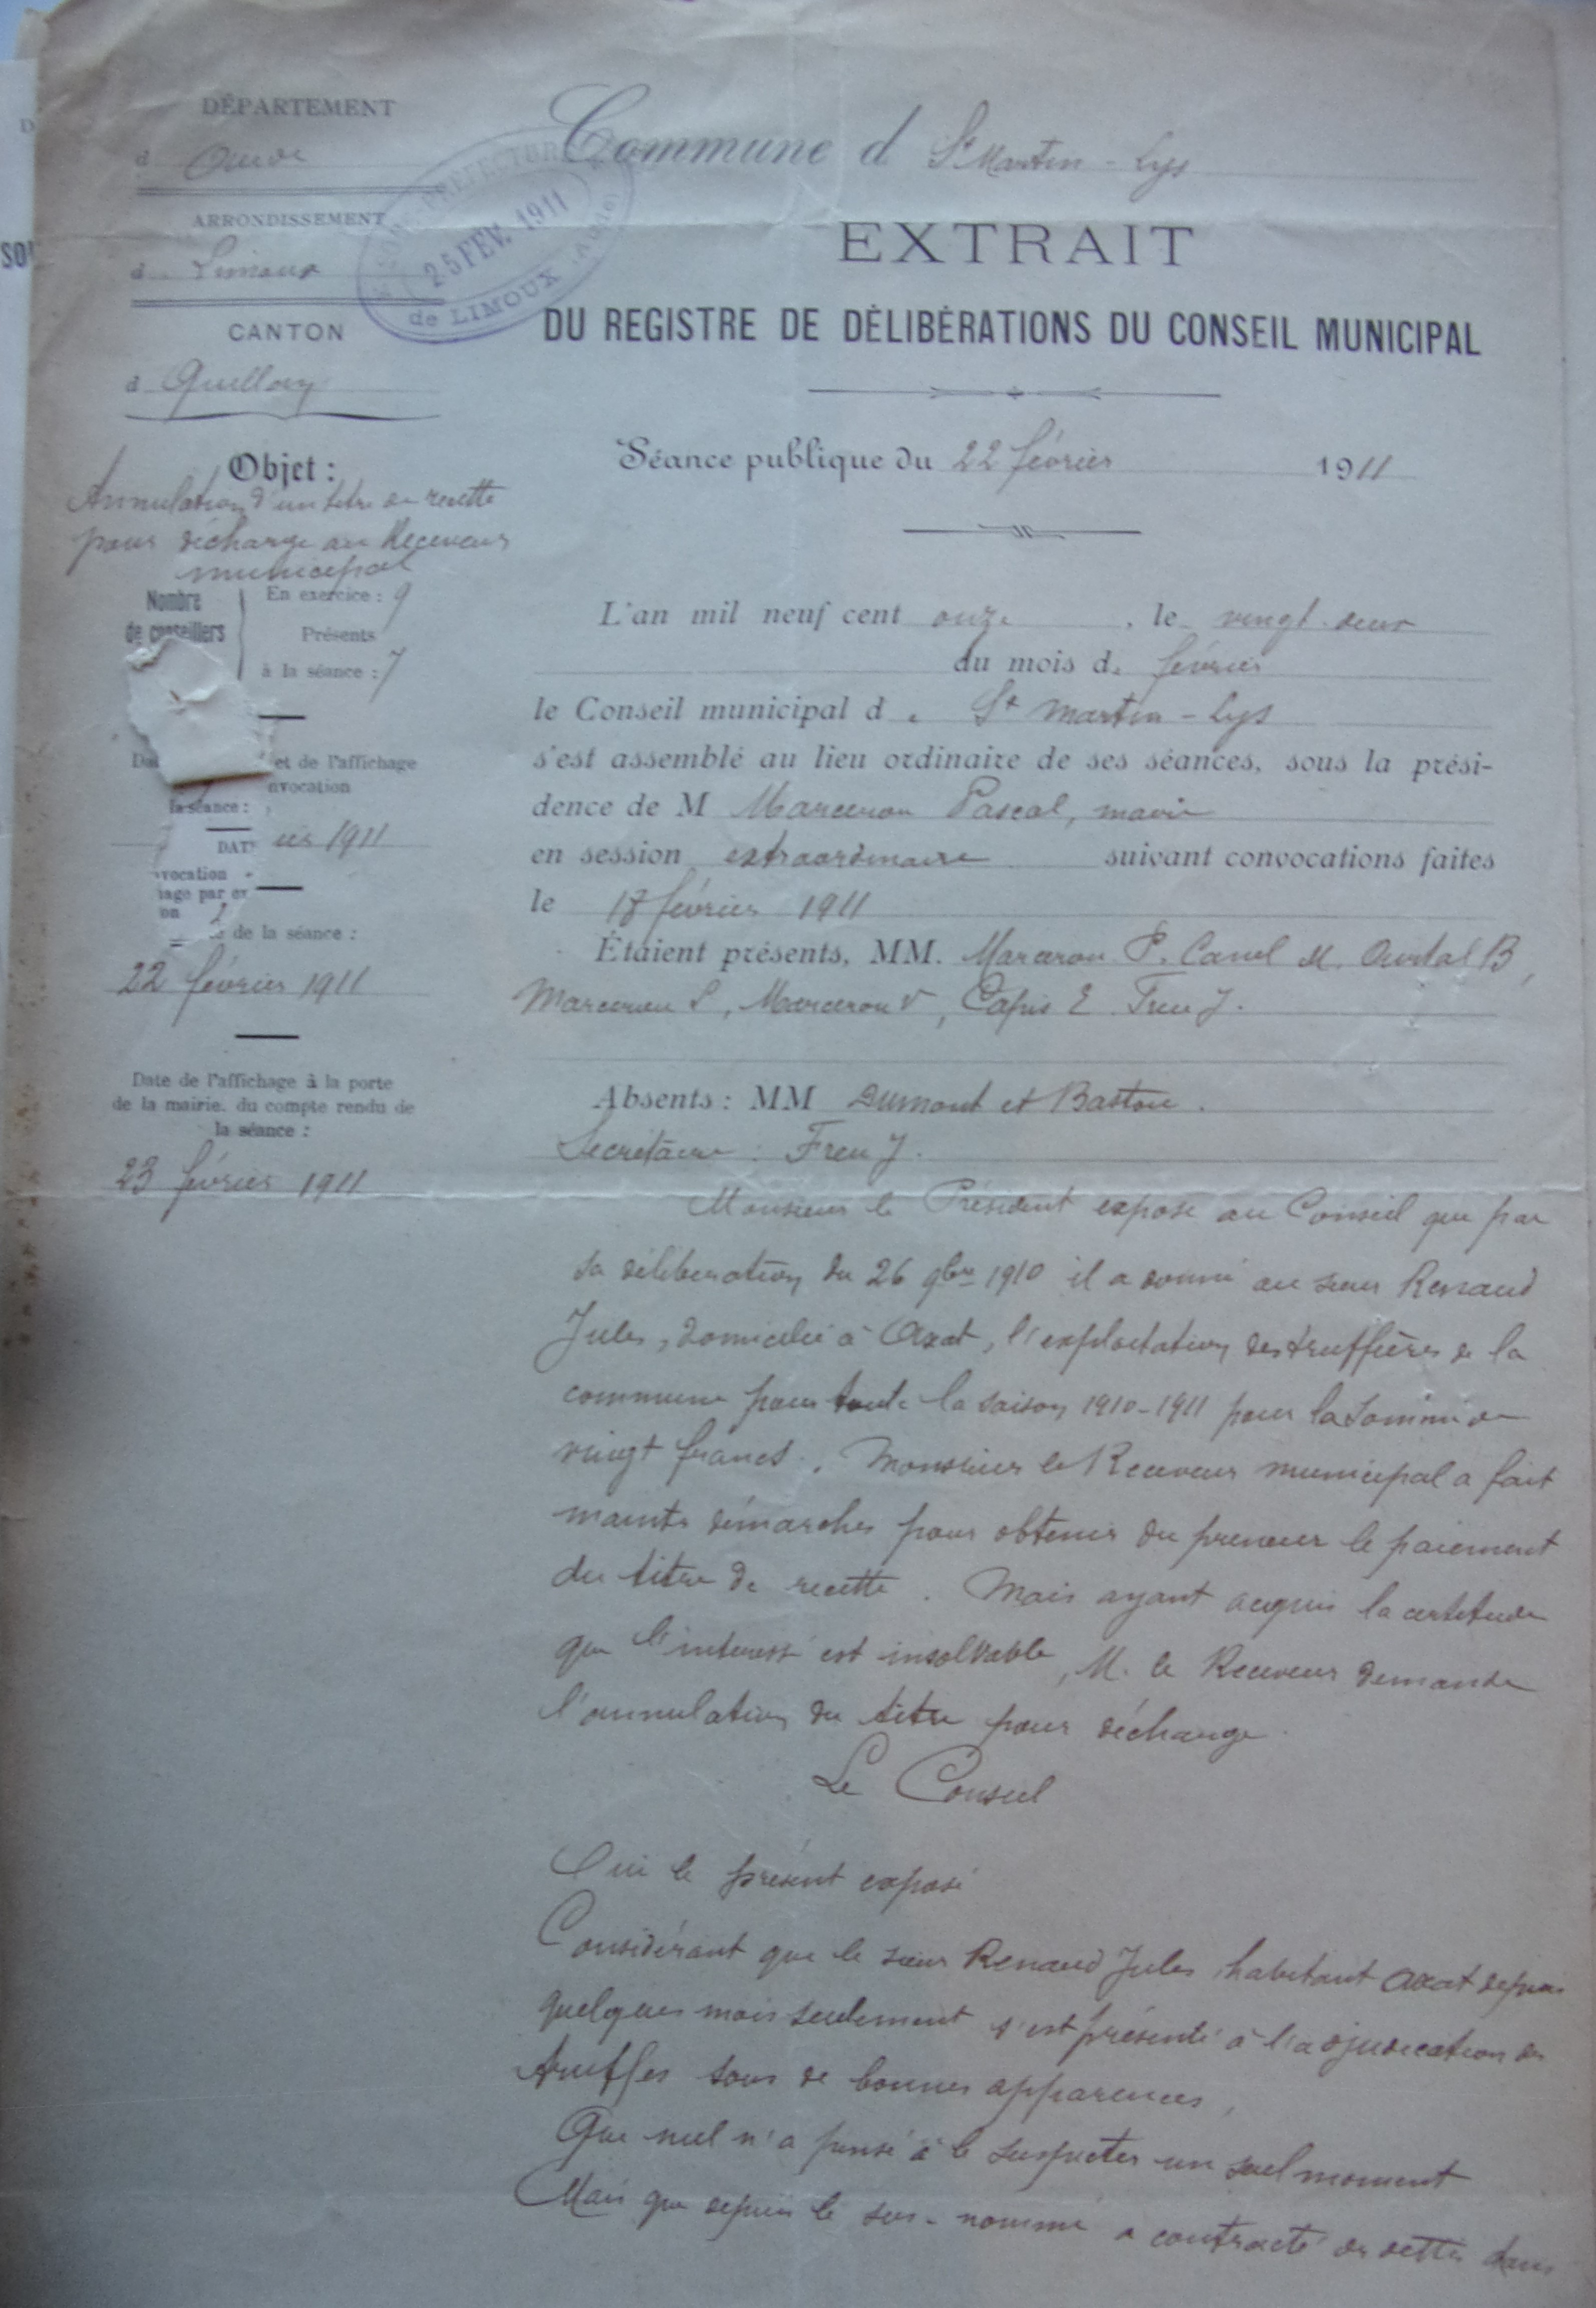 DÉPARTEMENT
d Aude
ARRONDISSEMENT
d Limoux
CANTON
d Quillan
SOUS-PRÉFECTURE
25 FEV. 1911
de LIMOUX (AUDE)
Commune d St Martin-Lys
EXTRAIT
DU REGISTRE DE DÉLIBÉRATIONS DU CONSEIL MUNICIPAL
Séance publique du 22 février 1911
Objet :
Annulation d'un titre de recette
pour décharge au Receveur
municipal
Nombre
de conseillers
En exercice : 9
Présents
à la séance : 7
et de l'affichage
nvocation
la séance :
DAT
ier 1911
vocation
age par ex
on
de la séance :
22 février 1911
Date de l'affichage à la porte
de la mairie, du compte rendu de
la séance :
23 février 1911
L'an mil neuf cent onze, le vingt-deux
du mois de février
le Conseil municipal de St Martin-Lys
s'est assemblé au lieu ordinaire de ses séances, sous la prési-
dence de M Marceron Pascal, maire
en session extraordinaire suivant convocations faites
le 18 février 1911
Étaient présents, MM. Marceron P. Canel M. B,
Marceron S, Marceron V, Capis E. Freu J.
Absents : MM Dumont et Bastou.
Secrétaire : Freu J.
Monsieur le Président expose au Conseil que par
sa délibération du 26 9bre 1910 il a donné au sieur Renaud
Jules, domicilié à Axat, l'exploitation des truffières de la
commune pour toute la saison 1910-1911 pour la somme de
vingt francs. Monsieur le Receveur municipal a fait
maintes démarches pour obtenir du preneur le paiement
du titre de recette. Mais ayant acquis la certitude
que l'intéressé est insolvable, M. le Receveur demande
l'annulation du titre pour décharge.
Le Conseil
Oui le présent exposé
Considérant que le sieur Renaud Jules habitant Axat depuis
quelques mois seulement s'est présenté à l'adjudication des
truffes sous de bonnes apparences,
Que nul n'a pensé à le suspecter un seul moment
Mais que depuis le sus-nommé a contracté des dettes dans